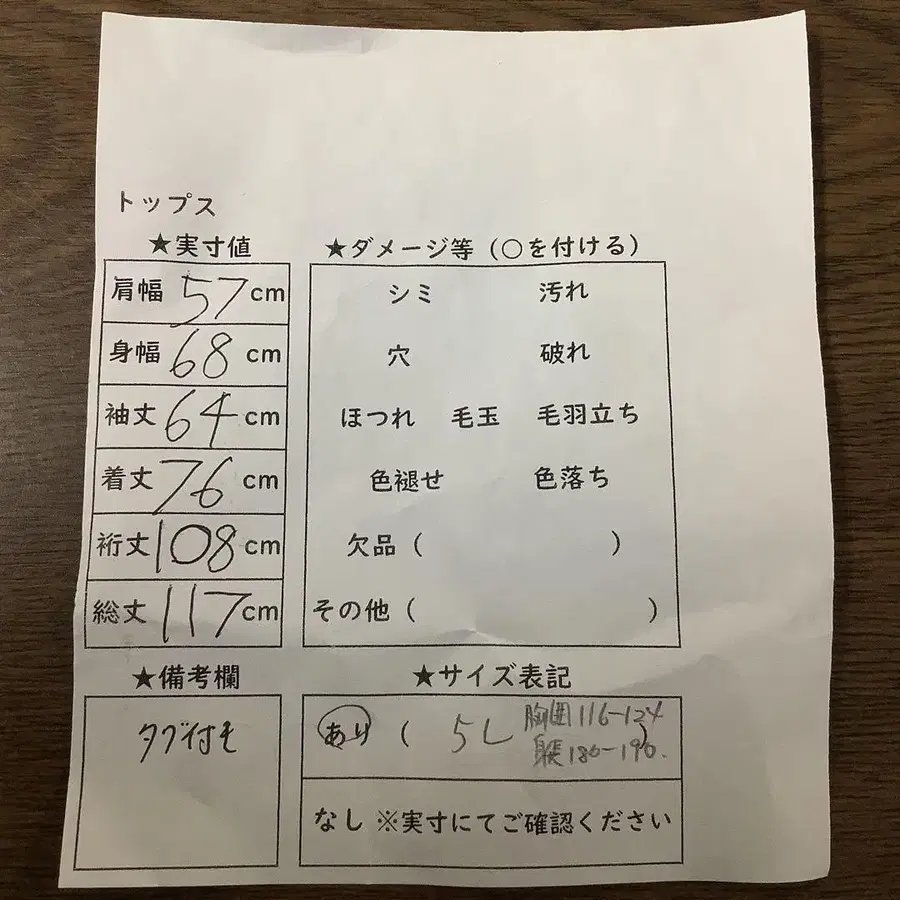 トップス
★実寸値
肩幅 57 cm
身幅 68 cm
袖丈 64 cm
着丈 76 cm
裄丈 108 cm
総丈 117 cm
★ダメージ等（○を付ける）
シミ 汚れ
穴 破れ
ほつれ 毛玉 毛羽立ち
色褪せ 色落ち
欠品（ ）
その他（ ）
★備考欄
タグ付き
★サイズ表記
あり（ 5L 胸囲116-124 ）
身長180-190.
なし ※実寸にてご確認ください